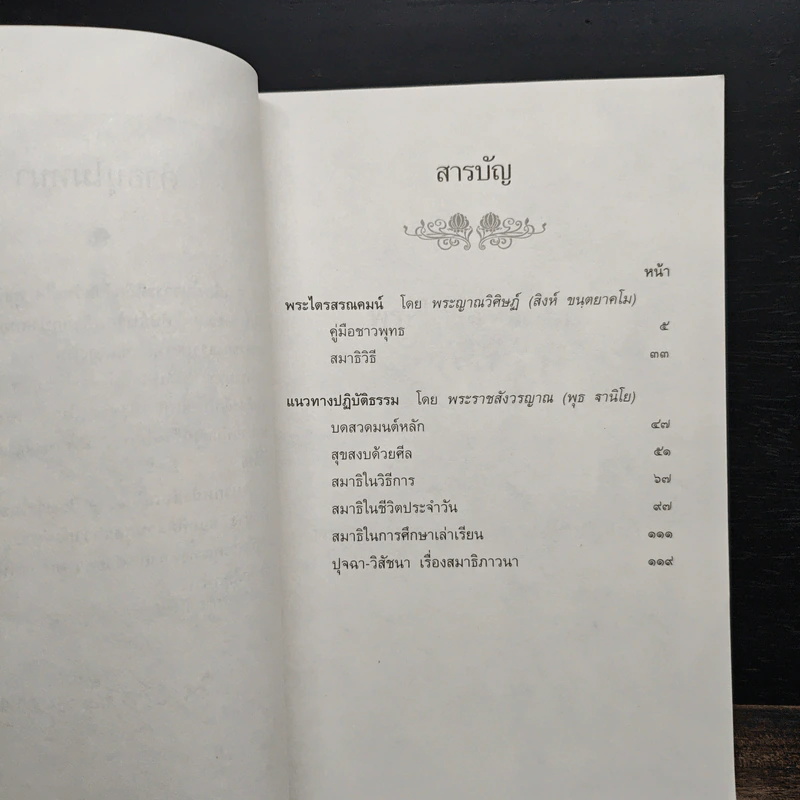 สารบัญ
หน้า
พระไตรสรณคมน์ โดย พระญาณวิศิษฏ์ (สิงห์ ขนฺตยาคโม)
คู่มือชาวพุทธ ๕
สมาธิวิธี ๓๓
แนวทางปฏิบัติธรรม โดย พระราชสังวรญาณ (พุธ ฐานิโย)
บดสวดมนต์หลัก ๔๗
สุขสงบด้วยศีล ๕๑
สมาธิในวิธีการ ๖๗
สมาธิในชีวิตประจำวัน ๙๗
สมาธิในการศึกษาเล่าเรียน ๑๑๑
ปุจฉา-วิสัชนา เรื่องสมาธิภาวนา ๑๑๙